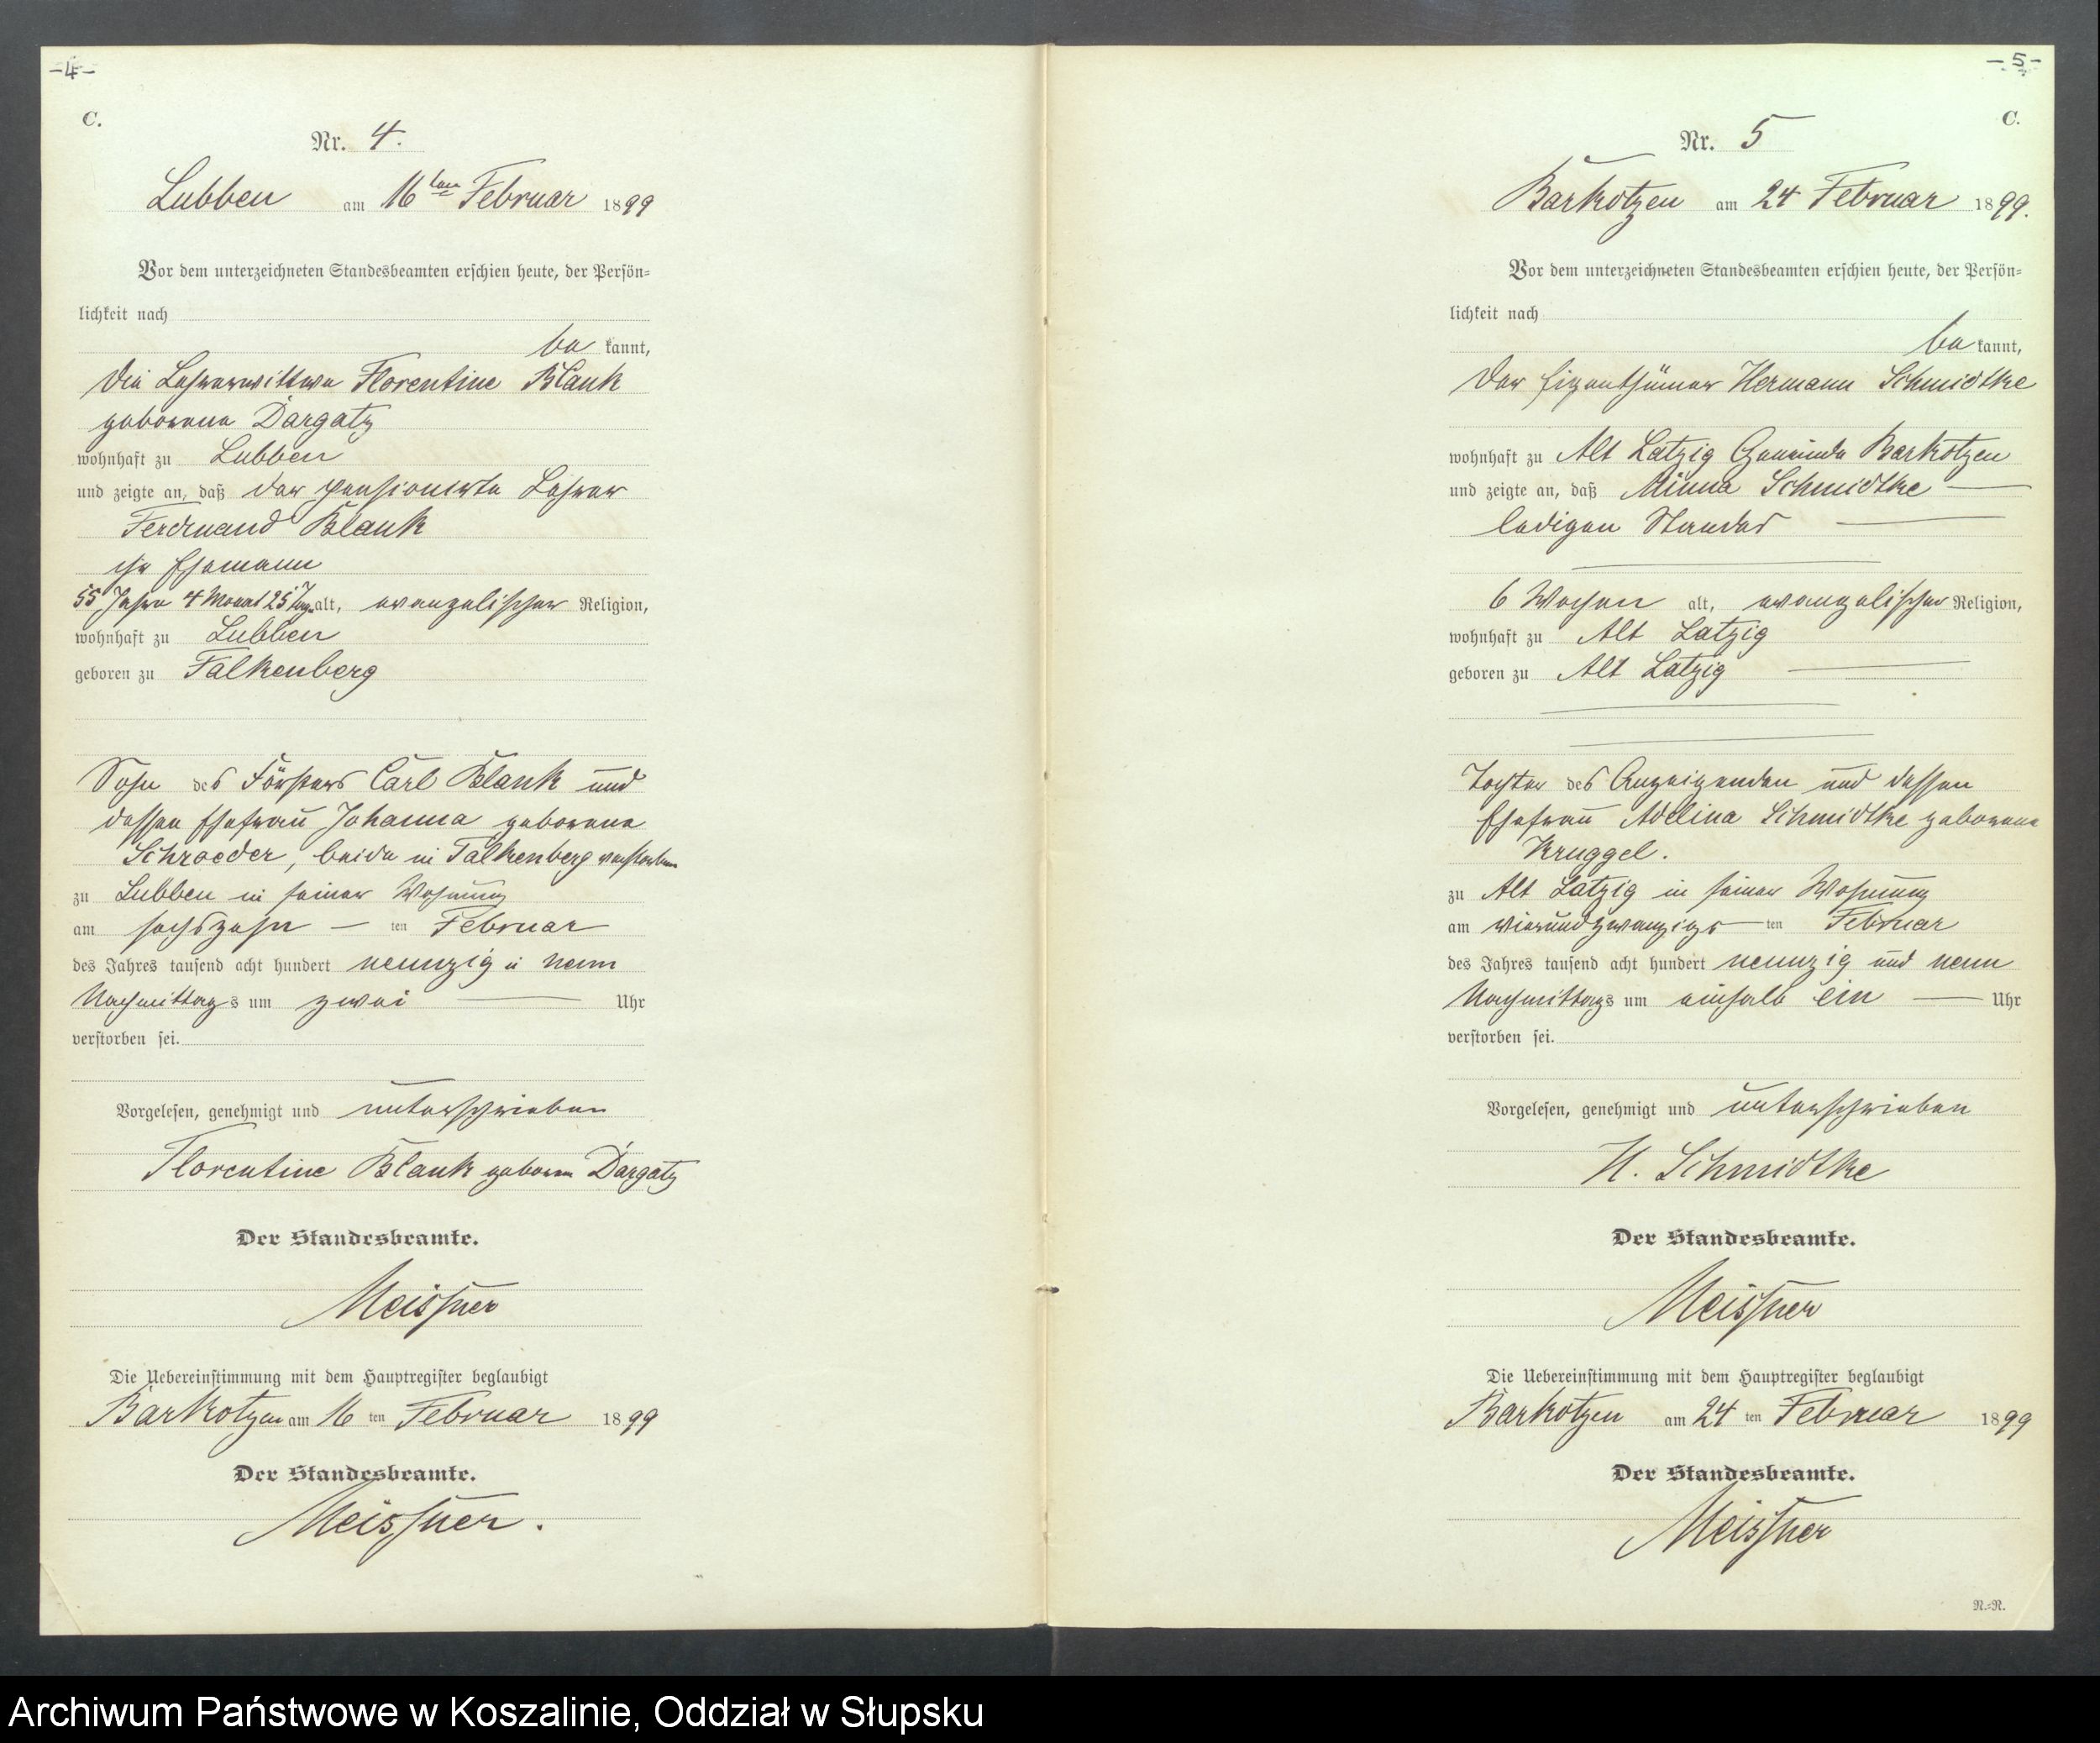 -4-
C.
Nr. 4.
Lubben am 16ten Februar 1899
Vor dem unterzeichneten Standesbeamten erschien heute, der Persön-
lichkeit nach
be kannt,
die Lehrerwittwe Florentine Blank
geborene Dargatz
wohnhaft zu Lubben
und zeigte an, daß der pensionirte Lehrer
Ferdinand Blank
ihr Ehemann
55 Jahre 4 Monat 25 Tage alt, evangelischer Religion,
wohnhaft zu Lubben
geboren zu Falkenberg
Sohn des Försters Carl Blank und
dessen Ehefrau Johanna geborene
Schroeder, beide in Falkenberg verstorben
zu Lubben in seiner Wohnung
am sechszehn — ten Februar
des Jahres tausend acht hundert neunzig u neun
Nachmittags um zwei — Uhr
verstorben sei.
Vorgelesen, genehmigt und unterschrieben
Florentine Blank geboren Dargatz
Der Standesbeamte.
Meissner
Die Uebereinstimmung mit dem Hauptregister beglaubigt
Barkotzen am 16 ten Februar 1899
Der Standesbeamte.
Meissner.
-5-
C.
Nr. 5
Barkotzen am 24 Februar 1899.
Vor dem unterzeichneten Standesbeamten erschien heute, der Persön-
lichkeit nach
be kannt,
der Eigenthümer Hermann Schmidtke
wohnhaft zu Alt Latzig Gemeinde Barkotzen
und zeigte an, daß Minna Schmidtke —
ledigen Standes —
6 Wochen alt, evangelischer Religion,
wohnhaft zu Alt Latzig
geboren zu Alt Latzig —
Tochter des Anzeigenden und dessen
Ehefrau Adelina Schmidtke geborene
Kruggel.
zu Alt Latzig in seiner Wohnung
am vierundzwanzigs — ten Februar
des Jahres tausend acht hundert neunzig und neun
Nachmittags um einhalb ein — Uhr
verstorben sei.
Vorgelesen, genehmigt und unterschrieben
H. Schmidtke
Der Standesbeamte.
Meissner
Die Uebereinstimmung mit dem Hauptregister beglaubigt
Barkotzen am 24 ten Februar 1899
Der Standesbeamte.
Meissner
N.=N.
Archiwum Państwowe w Koszalinie, Oddział w Słupsku